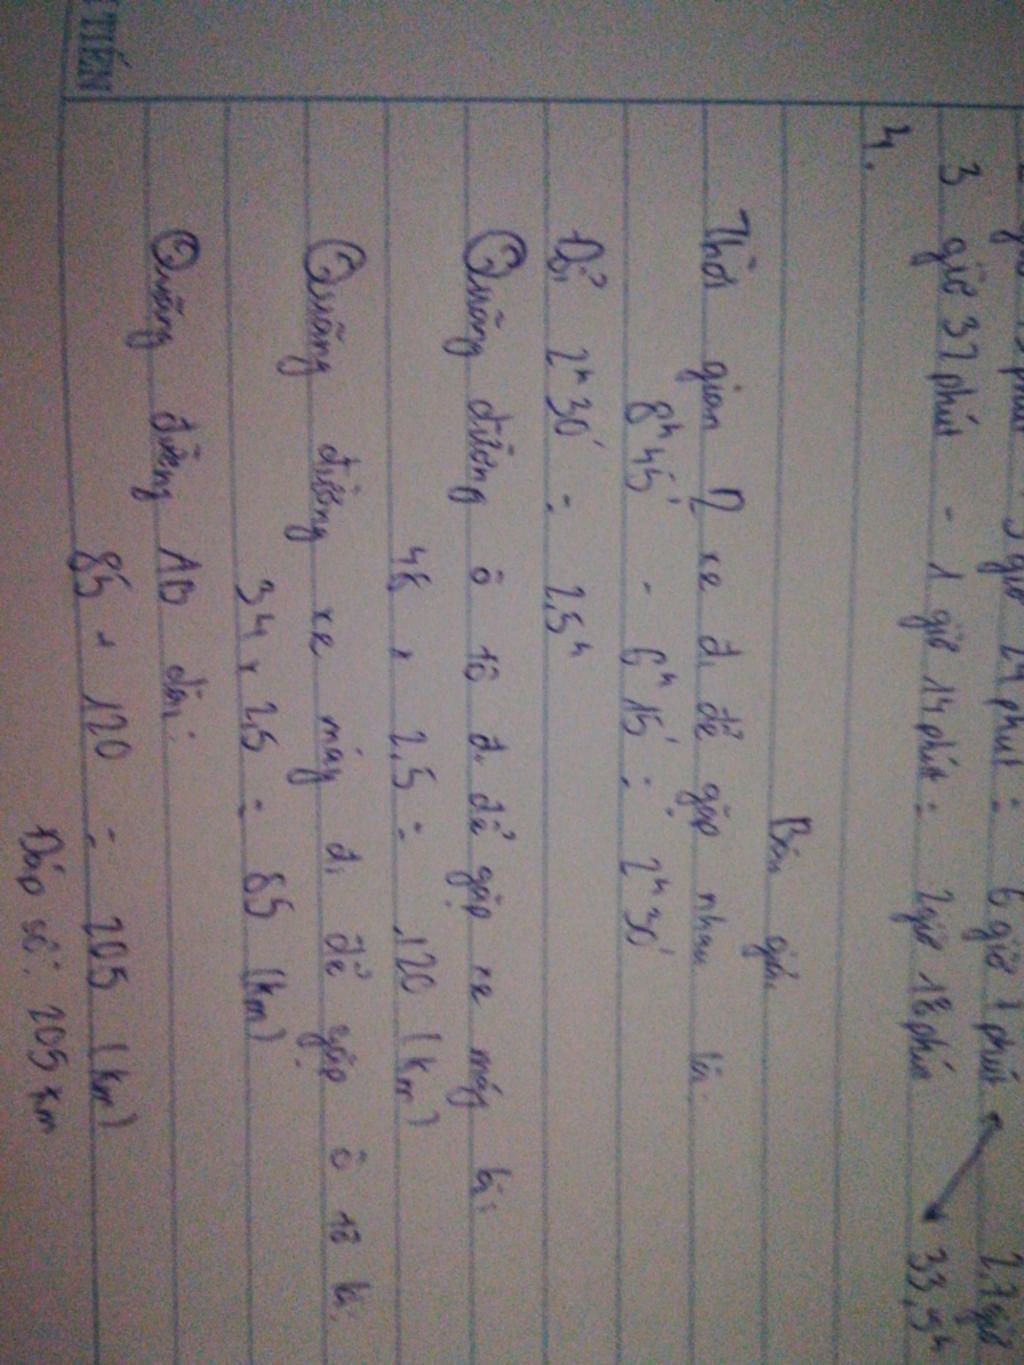 phút = 6 giờ 1 phút 2,7 giờ
3 giờ 32 phút - 1 giờ 14 phút = 2 giờ 18 phút 33,9 h
4.
Bài giải
Thời gian 2 xe đi để gặp nhau là:
8h45' - 6h15' = 2h30'
Đổi 2h30' = 2,5h
Quãng đường ô tô đi để gặp xe máy là:
48 x 2,5 = 120 (km)
Quãng đường xe máy đi để gặp ô tô là:
34 x 2,5 = 85 (km)
Quãng đường AB dài:
85 + 120 = 205 (km)
Đáp số: 205 km
TIẾN